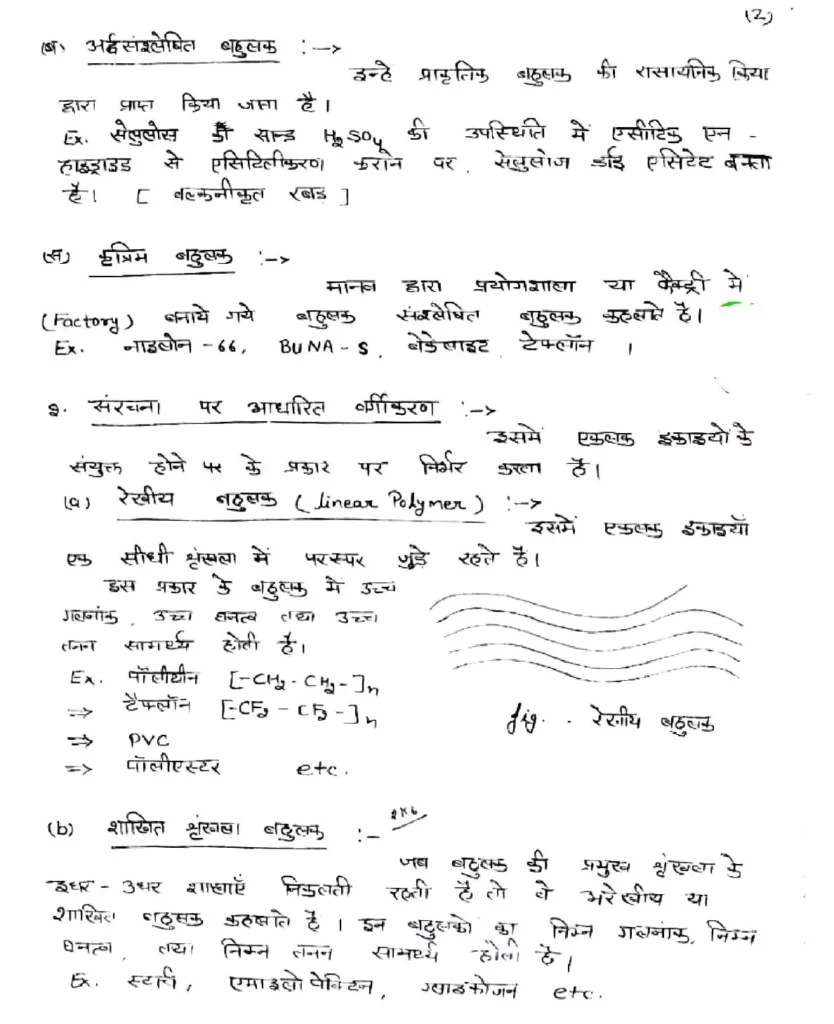 (2)
(ब) अर्द्धसंश्लेषित बहुलक :->
इन्हे प्राकृतिक बहुलक की रासायनिक क्रिया
द्वारा प्राप्त किया जाता है।
Ex. सेलुलोस की सान्द्र H₂SO₄ की उपस्थिति में एसीटिक एन -
हाइड्राइड से एसिटिलीकरण कराने पर, सेलुलोज डाई एसिटेट बनता
है। [ वल्कनीकृत रबड ]
(स) कृत्रिम बहुलक :->
मानव द्वारा प्रयोगशाला या फैक्ट्री में
(Factory) बनाये गये बहुलक संश्लेषित बहुलक कहलाते है।
Ex. नाइलोन -66, BUNA-S, बेकेलाइट, टेफ्लॉन ।
2. संरचना पर आधारित वर्गीकरण :->
इसमें एकलक इकाइयों के
संयुक्त होने पर के प्रकार पर निर्भर करता है।
(a) रेखीय बहुलक (linear Polymer) :->
इसमें एकलक इकाइयाँ
एक सीधी श्रृंखला में परस्पर जुड़े रहते है।
इस प्रकार के बहुलक में उच्च
गलनांक, उच्च घनत्व तथा उच्च
तनन सामर्थ्य होती है।
Ex. पॉलीथीन [-CH₂-CH₂-]n
=> टैफ्लॉन [-CF₂-CF₂-]n
=> PVC
=> पॉलीएस्टर etc.
fig. . रेखीय बहुलक
(b) शाखित श्रृंखला बहुलक :-
जब बहुलक की प्रमुख श्रृंखला के
इधर-उधर शाखाएँ निकलती रहती है तो वे अरेखीय या
शाखित बहुलक कहलाते है। इन बहुलको का निम्न गलनांक, निम्न
घनत्व, तथा निम्न तनन सामर्थ्य होती है।
Ex. स्टार्च, एमाइलोपेक्टिन, ग्लाइकोजन etc.